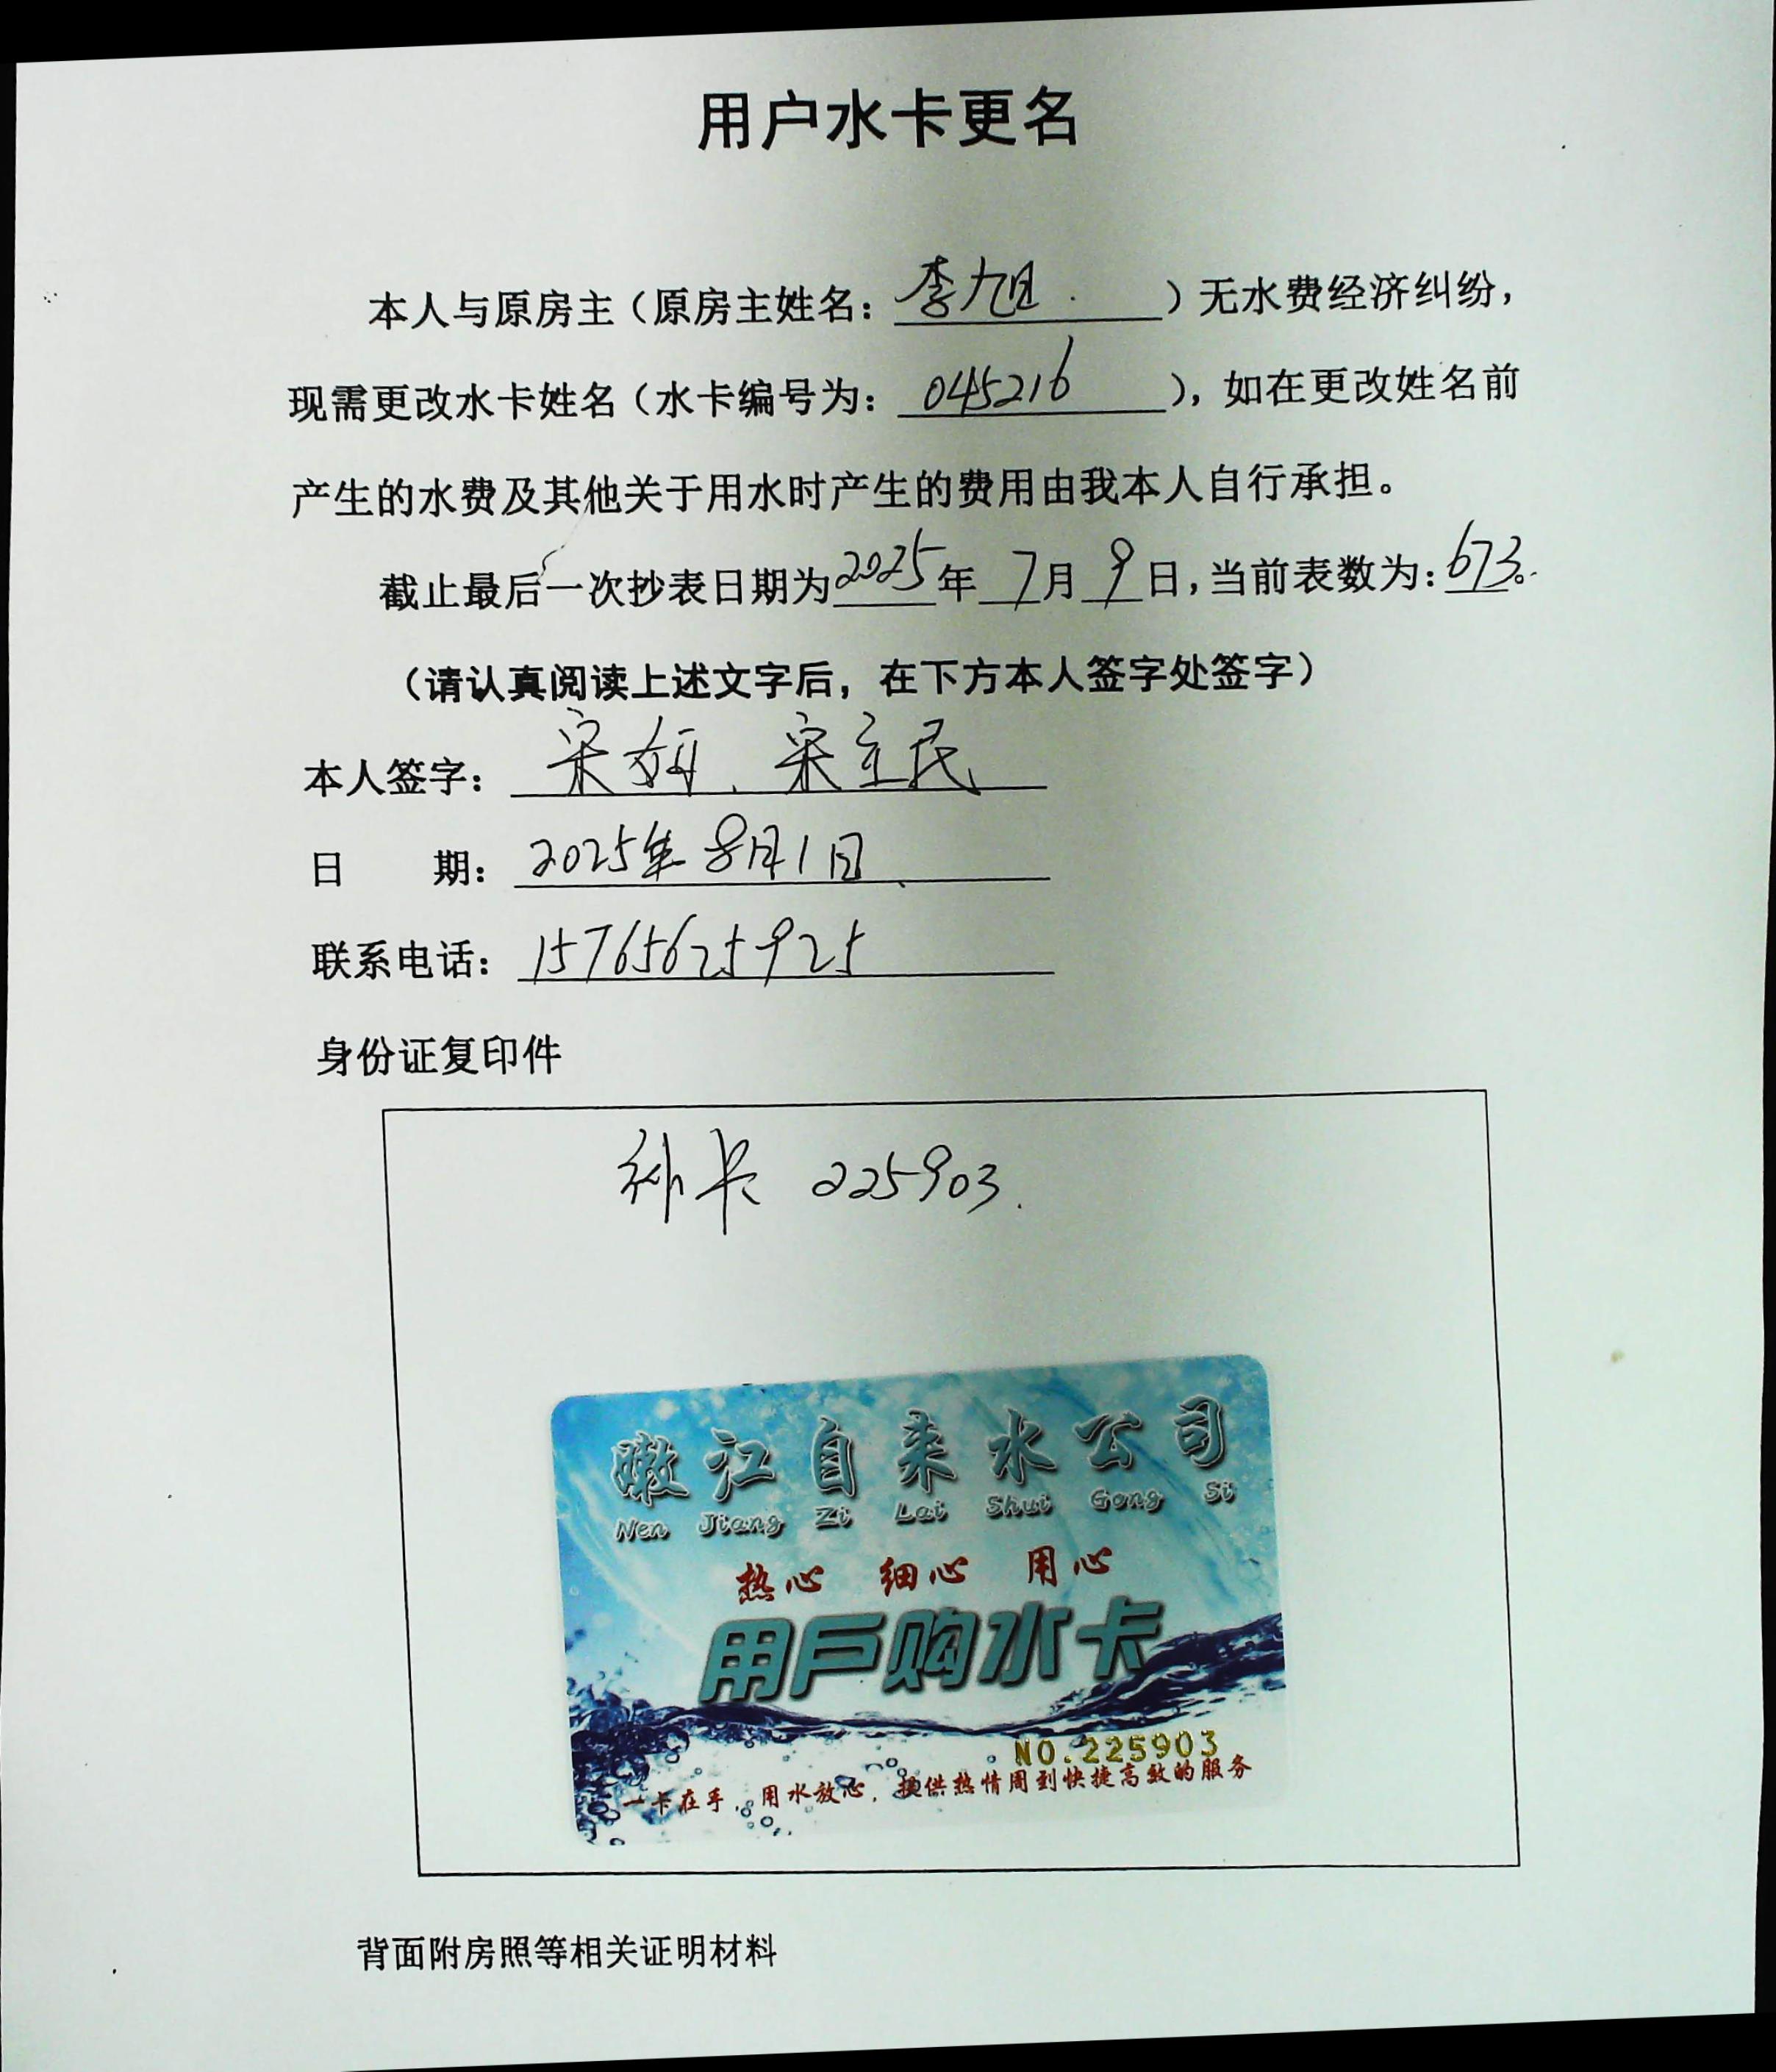 用户水卡更名
本人与原房主（原房主姓名：李旭）无水费经济纠纷，
现需更改水卡姓名（水卡编号为：045216），如在更改姓名前
产生的水费及其他关于用水时产生的费用由我本人自行承担。
截止最后一次抄表日期为2025年7月9日，当前表数为：673。
（请认真阅读上述文字后，在下方本人签字处签字）
本人签字：宋妍、宋立民
日 期：2025年8月1日
联系电话：15765625925
身份证复印件
补卡 225903.
嫩江自来水公司
Nen Jiang Zi Lai Shui Gong Si
热心 细心 用心
用戶购水卡
NO.225903
一卡在手，用水放心，提供热情周到快捷高效的服务
背面附房照等相关证明材料